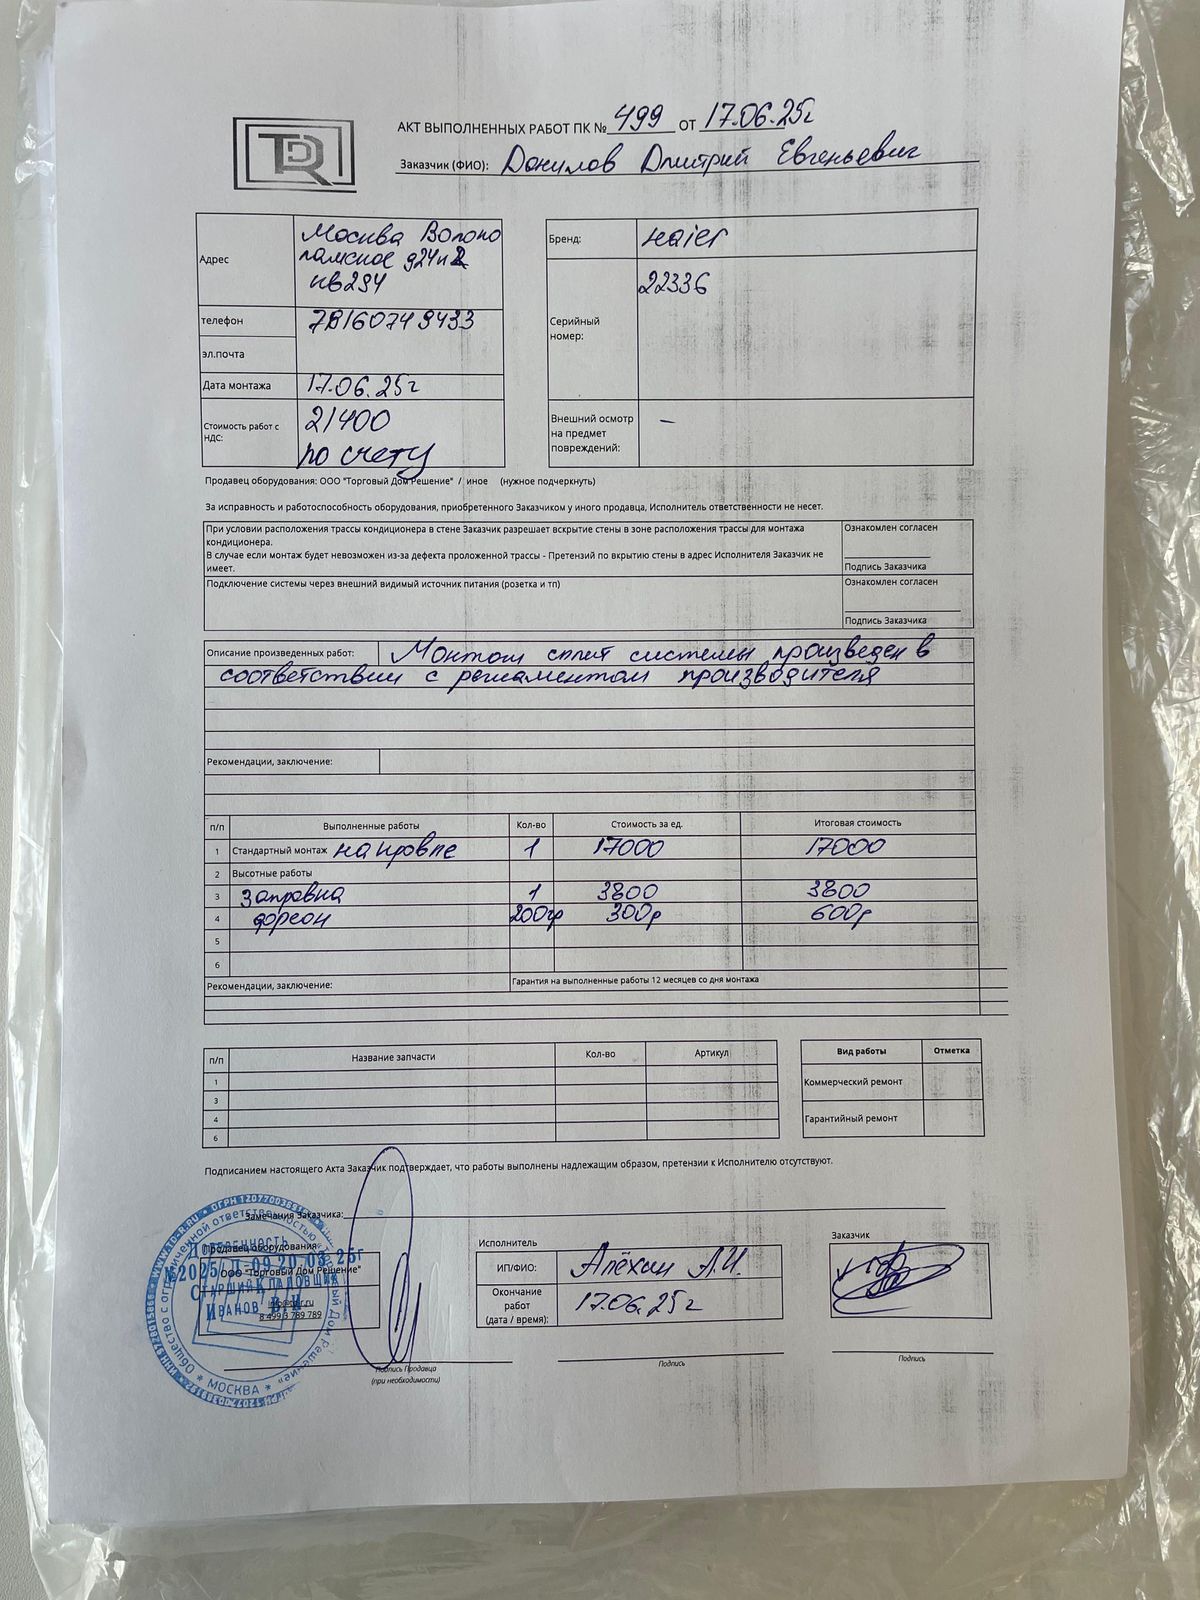 TDR
АКТ ВЫПОЛНЕННЫХ РАБОТ ПК № 499 ОТ 17.06.25г
Заказчик (ФИО): Данилов Дмитрий Евгеньевич
Адрес
Москва Волоко
ламское д24к2
кв294
телефон 79160749433
эл.почта
Дата монтажа 17.06.25г
Стоимость работ с НДС: 21400
по счету
Бренд: Haier
Серийный номер: 22336
Внешний осмотр на предмет повреждений: –
Продавец оборудования: ООО "Торговый Дом Решение" / иное (нужное подчеркнуть)
За исправность и работоспособность оборудования, приобретенного Заказчиком у иного продавца, Исполнитель ответственности не несет.
При условии расположения трассы кондиционера в стене Заказчик разрешает вскрытие стены в зоне расположения трассы для монтажа
кондиционера.
В случае если монтаж будет невозможен из-за дефекта проложенной трассы - Претензий по вкрытию стены в адрес Исполнителя Заказчик не
имеет.
Ознакомлен согласен
Подпись Заказчика
Подключение системы через внешний видимый источник питания (розетка и тп)
Ознакомлен согласен
Подпись Заказчика
Описание произведенных работ: Монтаж сплит системы произведен в
соответствии с регламентом производителя
Рекомендации, заключение:
п/п Выполненные работы Кол-во Стоимость за ед. Итоговая стоимость
1 Стандартный монтаж на кровле 1 17000 17000
2 Высотные работы
3 Заправка 1 3800 3800
4 фреон 200гр 300р 600р
5
6
Рекомендации, заключение: Гарантия на выполненные работы 12 месяцев со дня монтажа
п/п Название запчасти Кол-во Артикул
1
3
4
6
Вид работы Отметка
Коммерческий ремонт
Гарантийный ремонт
Подписанием настоящего Акта Заказчик подтверждает, что работы выполнены надлежащим образом, претензии к Исполнителю отсутствуют.
Замечания Заказчика:
Продавец оборудования
ООО "Торговый Дом Решение"
info@td-r.ru
8 499 3 789 789
Доверенность
№2025/П-09 20.03.25г
Старший Кладовщик
Иванов В.И
Общество с ограниченной ответственностью
МОСКВА
Подпись Продавца
(при необходимости)
Исполнитель
ИП/ФИО: Алёхин А.И.
Окончание работ (дата / время): 17.06.25г
Подпись
Заказчик
Подпись